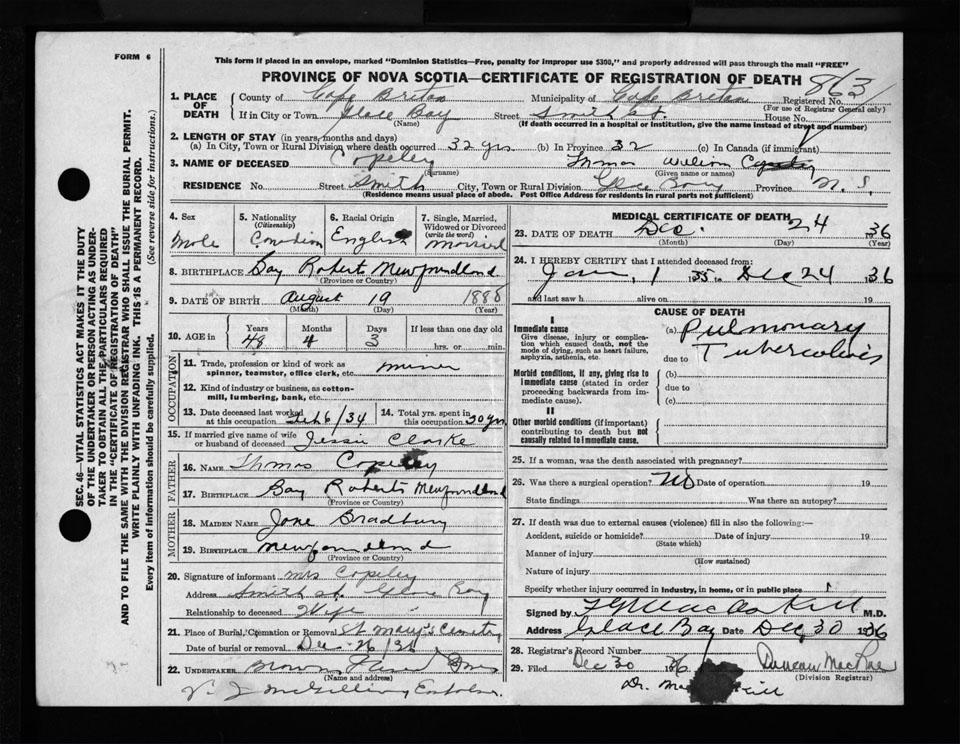 FORM 6
This form if placed in an envelope, marked "Dominion Statistics—Free, penalty for improper use $300," and properly addressed will pass through the mail "FREE"
PROVINCE OF NOVA SCOTIA—CERTIFICATE OF REGISTRATION OF DEATH
863
1. PLACE OF DEATH
County of Cape Breton Municipality of Cape Breton Registered No.
(For use of Registrar General only)
If in City or Town Glace Bay Street Smith St. House No.
(Name) (If death occurred in a hospital or institution, give the name instead of street and number)
2. LENGTH OF STAY (in years, months and days)
(a) In City, Town or Rural Division where death occurred 32 yrs (b) In Province 32 (c) In Canada (if immigrant)
3. NAME OF DECEASED Copeley Thomas William
(Surname) (Given name or names)
RESIDENCE No. Street Smith City, Town or Rural Division Glace Bay Province N. S.
(Residence means usual place of abode. Post Office Address for residents in rural parts not sufficient)
4. Sex
Male
5. Nationality
(Citizenship)
Canadian
6. Racial Origin
English
7. Single, Married, Widowed or Divorced
(write the word)
married
8. BIRTHPLACE Bay Roberts Newfoundland
(Province or Country)
9. DATE OF BIRTH August 19 1888
(Month) (Day) (Year)
10. AGE in
Years Months Days If less than one day old
48 4 3 hrs. or min.
OCCUPATION
11. Trade, profession or kind of work as spinner, teamster, office clerk, etc. miner
12. Kind of industry or business, as cotton-mill, lumbering, bank, etc.
13. Date deceased last worked at this occupation 6/34
14. Total yrs. spent in this occupation 30 yrs
15. If married give name of wife or husband of deceased Jessie Clarke
FATHER
16. NAME Thomas Copeley
17. BIRTHPLACE Bay Roberts Newfoundland
(Province or Country)
MOTHER
18. MAIDEN NAME Jane Bradbury
19. BIRTHPLACE Newfoundland
(Province or Country)
20. Signature of informant Mrs Copeley
Address Smith St Glace Bay
Relationship to deceased Wife
21. Place of Burial, Cremation or Removal St Mary's Cemetry
Date of burial or removal Dec 26/36
22. UNDERTAKER
(Name and address)
MEDICAL CERTIFICATE OF DEATH
23. DATE OF DEATH Dec. 24 1936
(Month) (Day) (Year)
24. I HEREBY CERTIFY that I attended deceased from:
Jan 1 1935 to Dec 24 1936
and last saw h alive on 19
CAUSE OF DEATH
I
Immediate cause
Give disease, injury or complication which caused death, not the mode of dying, such as heart failure, asphyxia, asthenia, etc.
(a) Pulmonary
due to Tuberculosis
Morbid conditions, if any, giving rise to immediate cause (stated in order proceeding backwards from immediate cause).
(b)
due to
(c)
II
Other morbid conditions (if important) contributing to death but not causally related to immediate cause.
25. If a woman, was the death associated with pregnancy?
26. Was there a surgical operation? No Date of operation 19
State findings Was there an autopsy?
27. If death was due to external causes (violence) fill in also the following:—
Accident, suicide or homicide? Date of injury 19
(State which)
Manner of injury
(How sustained)
Nature of injury
Specify whether injury occurred in Industry, in home, or in public place
Signed by M.D.
Address Glace Bay Date Dec 30 1936
28. Registrar's Record Number
29. Filed Dec 30 1936 Duncan MacRae
(Division Registrar)
SEC. 46—VITAL STATISTICS ACT MAKES IT THE DUTY
OF THE UNDERTAKER OR PERSON ACTING AS UNDER-
TAKER TO OBTAIN ALL THE PARTICULARS REQUIRED
IN THE "CERTIFICATE OF REGISTRATION OF DEATH"
AND TO FILE THE SAME WITH THE DIVISION REGISTRAR WHO SHALL ISSUE THE BURIAL PERMIT.
WRITE PLAINLY WITH UNFADING INK. THIS IS A PERMANENT RECORD.
Every item of information should be carefully supplied. (See reverse side for instructions.)